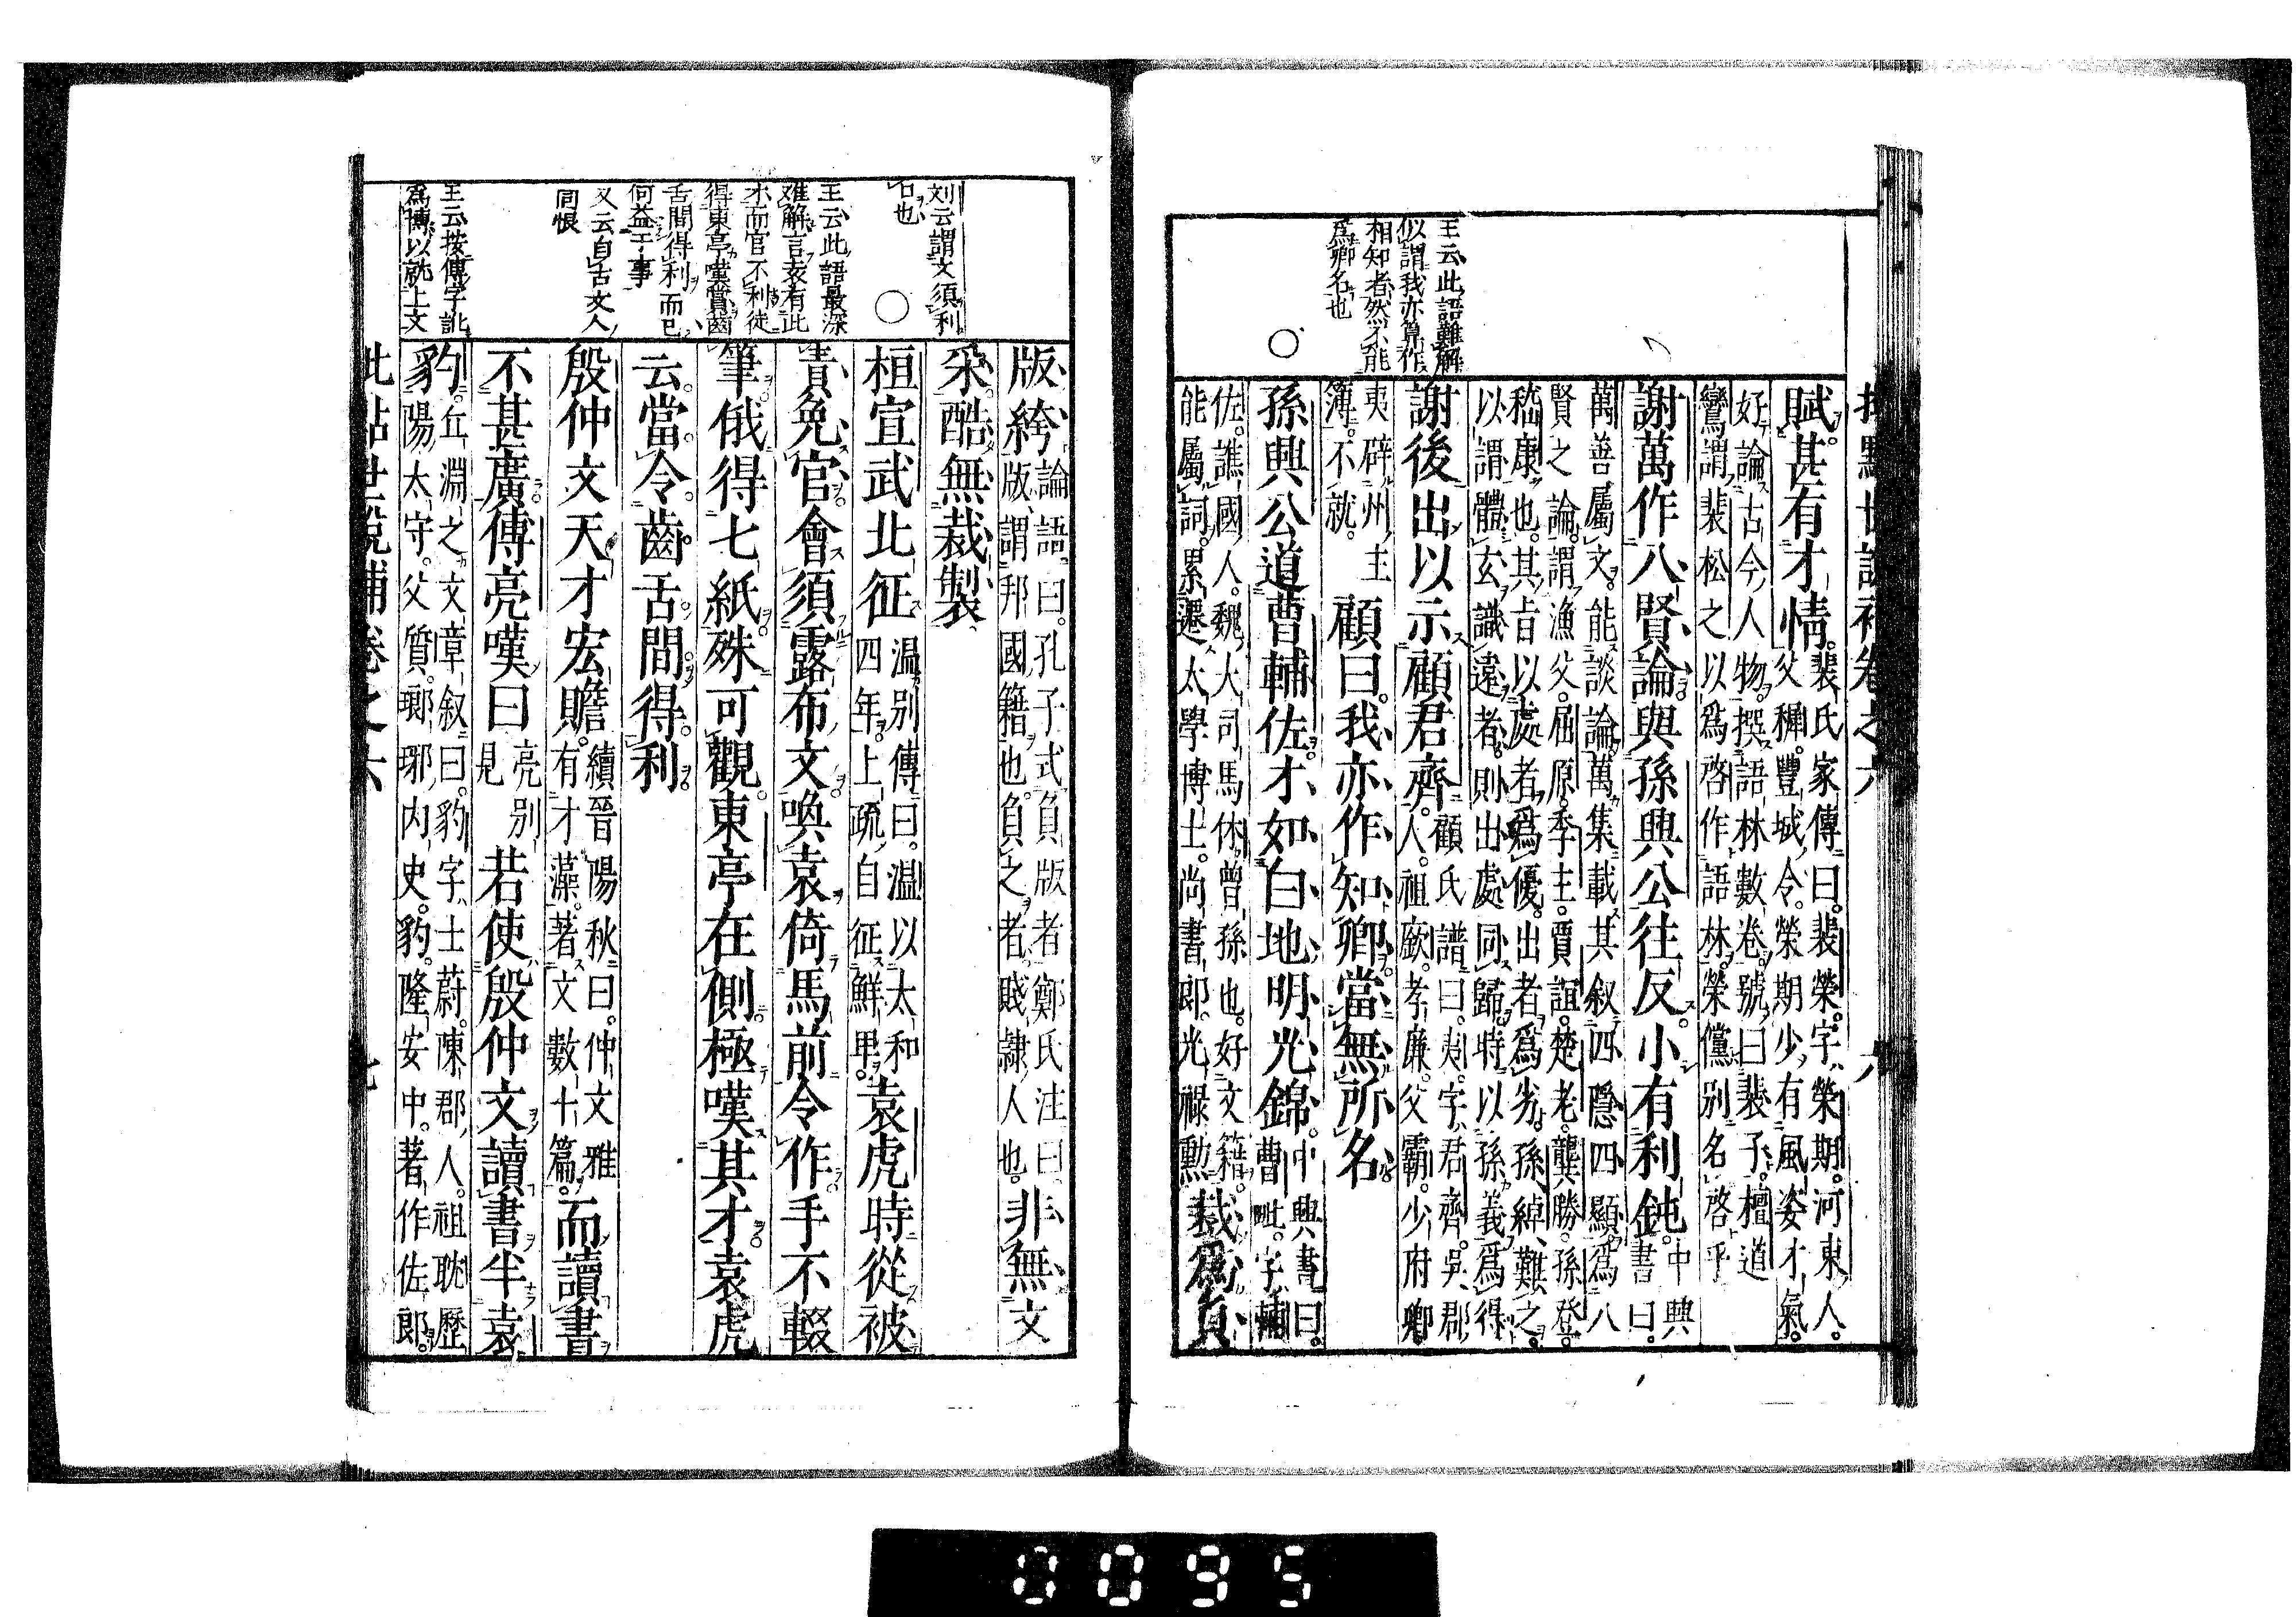 王云此語難解
似謂我亦算作
相知者然不能
爲卿名也
賦甚有才情。裴氏家傳曰。裴榮。字榮期。河東人。
父穉。豐城令。榮期少有風姿才氣。
好論古今人物。撰語林數卷。號曰裴子。檀道
鸞謂裴松之以爲啓作語林。榮儻别名啓乎
謝萬作八賢論與孫興公往反。小有利鈍。中興
書曰。
萬善屬文。能談論。萬集載其叙四隱四顯。爲八
賢之論。謂漁父。屈原。季主。賈誼。楚老。龔勝。孫登。
嵇康也。其旨以處者爲優。出者爲劣。孫綽難之。
以謂體玄識遠者。則出處同歸。時以孫義爲得
謝後出以示顧君齊。顧氏譜曰。夷字君齊。吳郡
人。祖廞。孝廉。父霸。少府卿
夷辟州主
簿。不就。
顧曰。我亦作知卿當無所名
孫興公道曹輔佐。才如白地明光錦。中興書曰。
曹毗。字輔
佐。譙國人。魏大司馬休曾孫也。好文籍。
能屬詞。累遷太學博士。尚書郎。光祿勳
裁爲負
刘云謂文須利
口也
王云此語最深
难解言袁有此
才而官不利徒
得東亭嘆賞齒
舌間得利而已
何益于事
又云自古文人
同恨
王云按傳字訛
爲博以就上文
版絝論語曰。孔子式負版者鄭氏注曰
版謂邦國籍也。負之者。賤隷人也。
非無文
采。酷無裁製
桓宣武北征温别傳曰。温以太和
四年。上疏自征鮮卑。
袁虎時從被
責免官會須露布文喚袁倚馬前令作手不輟
筆俄得七紙殊可觀。東亭在側。極嘆其才。袁虎
云。當令齒舌間得利
殷仲文天才宏贍。續晉陽秋曰。仲文雅
有才藻。著文數十篇。
而讀書
不甚廣傅亮嘆曰亮别
見
若使殷仲文讀書半袁
豹。丘淵之文章叙曰。豹字士蔚。陳郡人。祖耽歷
陽太守。父質。瑯琊内史。豹。隆安中。著作佐郎。
0095